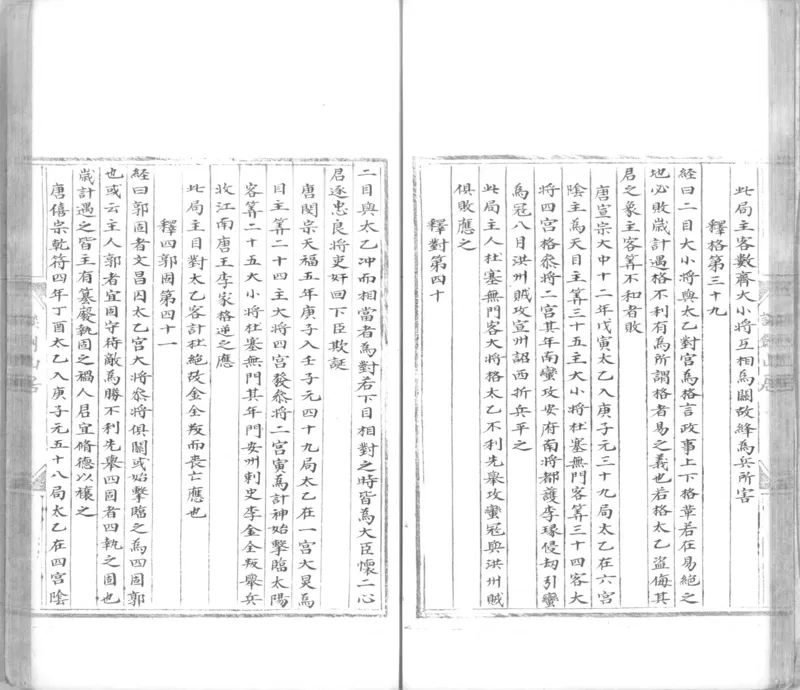 此局主客數齊大小將互相為關故絳為兵所害
釋格第三十九
經曰二目大小將與太乙對宮為格言政事上下格革若在易絕之
地必敗歲計遇格不利有為所謂格者易之義也若格太乙盜侮其
君之象主客筭不和者敗
唐宣宗大中十二年戊寅太乙入庚子元三十九局太乙在六宮
陰主為天目主筭三十五主大小將杜塞無門客筭三十四客大
將四宮格叅將二宮其年南蠻攻安府南將都護李琢侵刼引蠻
為冦八月洪州賊攻宣州詔西折兵平之
此局主人杜塞無門客大將格太乙不利先舉攻蠻冦與洪州賊
俱敗應之
釋對第四十
二目與太乙冲而相當者為對若下目相對之時皆為大臣懷二心
君逐忠良將吏奸回下臣欺誕
唐閔宗天福五年庚子入壬子元四十九局太乙在一宮大炅為
目主筭二十四主大將四宮發叅將二宮寅為計神始擊臨太陽
客筭二十五大小將杜塞無門其年門安州剌史李金全叛舉兵
攻江南唐王李家格逆之應
此局主目對太乙客計杜絶故金全叛而喪亡應也
釋四郭固第四十一
經曰郭固者文昌囚太乙宮大將叅將俱關或始擊臨之為四固郭
也或云主人郭者宜固守待敵為勝不利先舉四固者四執之固也
歲計遇之皆主有簒廢執固之禍人君宜脩德以禳之
唐僖宗乾符四年丁酉太乙入庚子元五十八局太乙在四宮陰